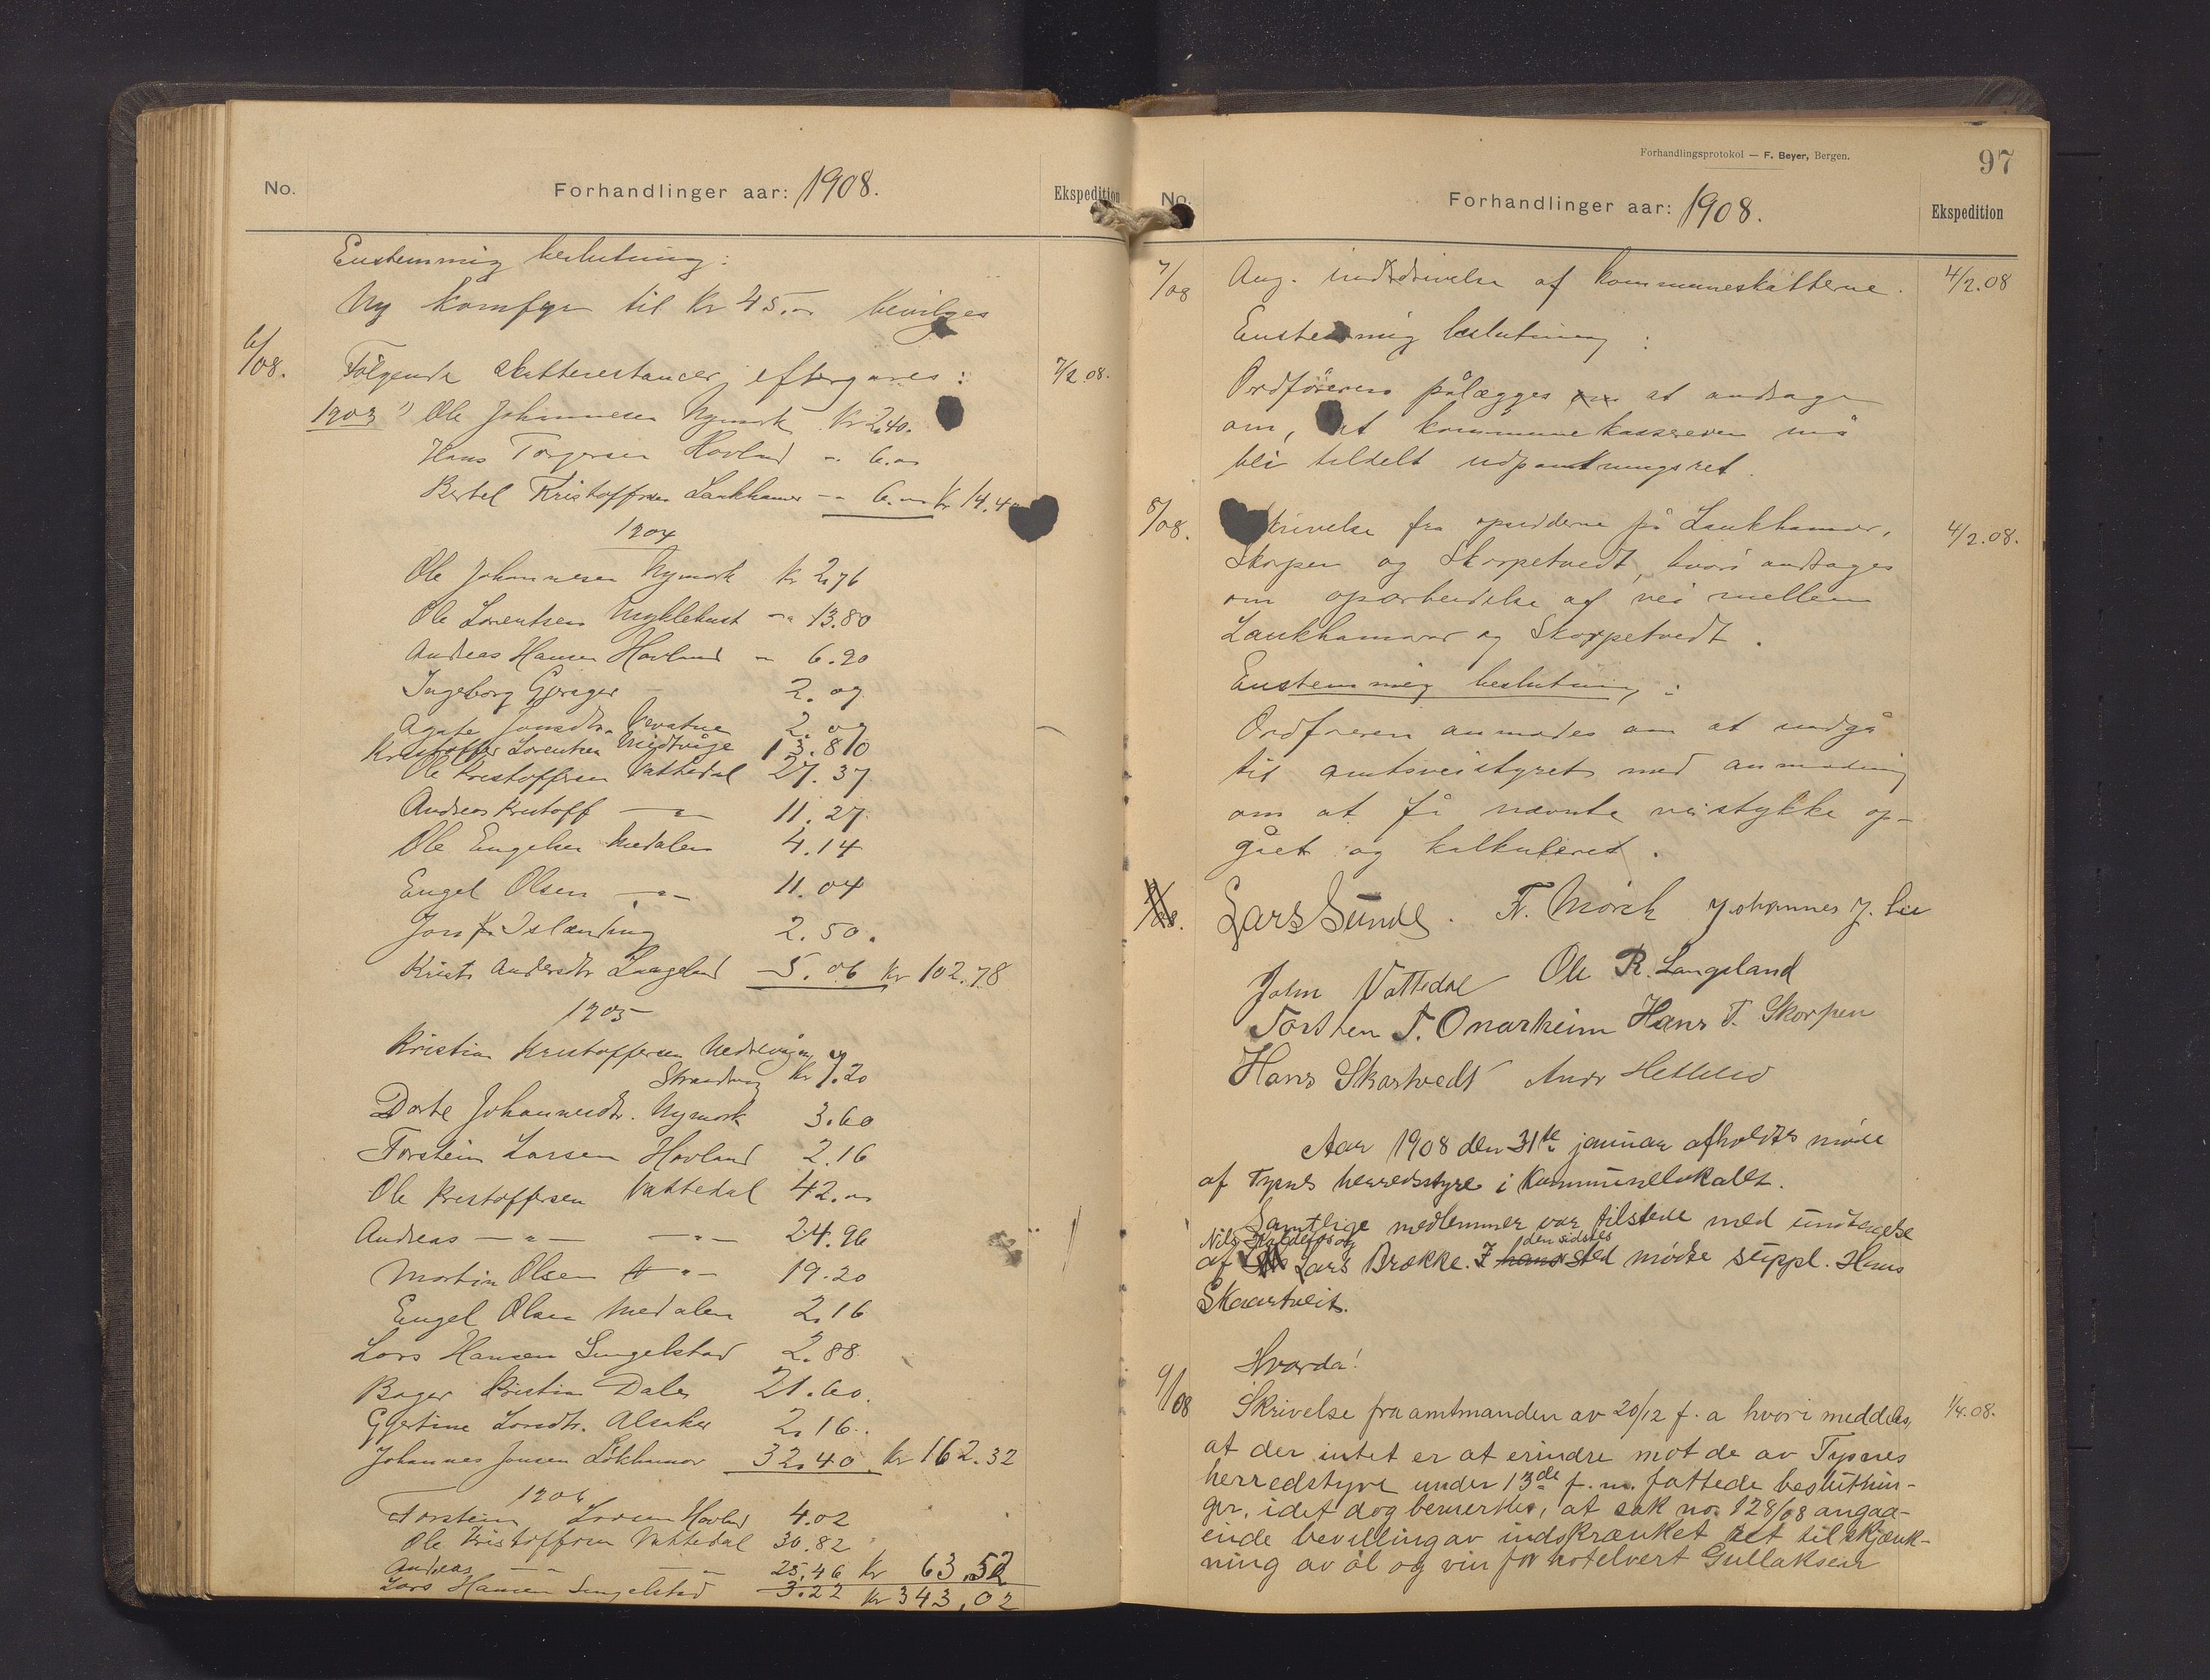 No.
Forhandlinger aar: 1908.
Ekspedition
Enstemmig beslutning:
Ny komfyr til Kr 45.00 bevilges
6/08.
Følgende skatterestancer eftergaves:
7/2.08.
1903 Ole Johannesen Nymark Kr 2.40.
Hans Torgersen Hovland - 6.00
Bertel Kristoffersen Laukhamer - 6.00 Kr 14.40
1904
Ole Johannesen Nymark Kr 2.76
Ole Lorentsen Myklebust - 13.80
Andreas Hansen Hovland - 6.90
Ingeborg Gjerager 2.07
Agate Jonsdtr. 2.07
Kristoffer Lorentsen 13.80
Ole Kristoffersen Vattedal 27.37
Andreas Kristoff — " — 11.27
Ole Engelsen Medalen 4.14
Engel Olsen — " — 11.04
Jon Islænding 2.50.
Kristi Andersdtr Langeland 5.06 Kr 102.78
1905
Kristian Kristoffersen
Strandvig Kr 7.20
Dorte Johannesdtr. Nymark 3.60
Torstein Larsen Hovland 2.16
Ole Kristoffersen Vattedal 42.00
Andreas — " — — " — 24.96
Martin Olsen — " — 19.20
Engel Olsen Medalen 2.16
Lars Hansen Singelstad 2.88
Bager Kristian Dale 21.60.
Gjertine Larsdtr. Alsaker 2.16.
Johannes Jonsen Lökhamar 32.40 Kr 162.32
1906
Torstein Larsen Hovland 4.02
Ole Kristoffersen Vattedal 30.82
Andreas — " — — " — 25.46 Kr 63.52
Lars Hansen Singelstad 3.22 Kr 343.02
Forhandlingsprotokol — F. Beyer, Bergen.
97
No.
Forhandlinger aar: 1908.
Ekspedition
7/08
Ang. inddrivelse af kommuneskatterne.
4/2.08
Enstemmig beslutning:
Ordføreren pålægges at andrage
om, at kommunekassereren må
bli tildelt udpantningsret.
8/08.
Skrivelse fra opsidderne på Laukhamar,
4/2.08.
Skorpen og Skorpetvedt, hvori andrages
om oparbeidelse af vei mellem
Laukhamar og Skorpetvedt.
Enstemmig beslutning:
Ordføreren anmodes om at indgå
til amtsveistyret med anmodning
om at få nævnte veistykke op-
gået og kalkuleret.
Lars Sunde. Fr. Mörch Johannes J. Lie
John Vattedal Ole R. Langeland
Torsten T. Onarheim Hans T. Skorpen
Hans Skartvedt Andr Hetlelid
Aar 1908 den 31te januar afholdtes møde
af Tysnes herredsstyre i Kommunelokalet.
Samtlige medlemmer var tilstede med undtagelse
Nils
af Lars Brække. I hans den sidstes sted mødte suppl. Hans
Skaartveit.
Hvorda!
9/08
Skrivelse fra amtmanden av 20/12 f. a hvori meddeles,
1/4.08.
at der intet er at erindre mot de av Tysnes
herredstyre under 13de f. m. fattede beslutnin-
ger, idet dog bemerkes, at sak no. 128/08 angaa-
ende bevilling av indskrænket ret til skjænk-
ning av öl og vin for hotelvert Gullaksen